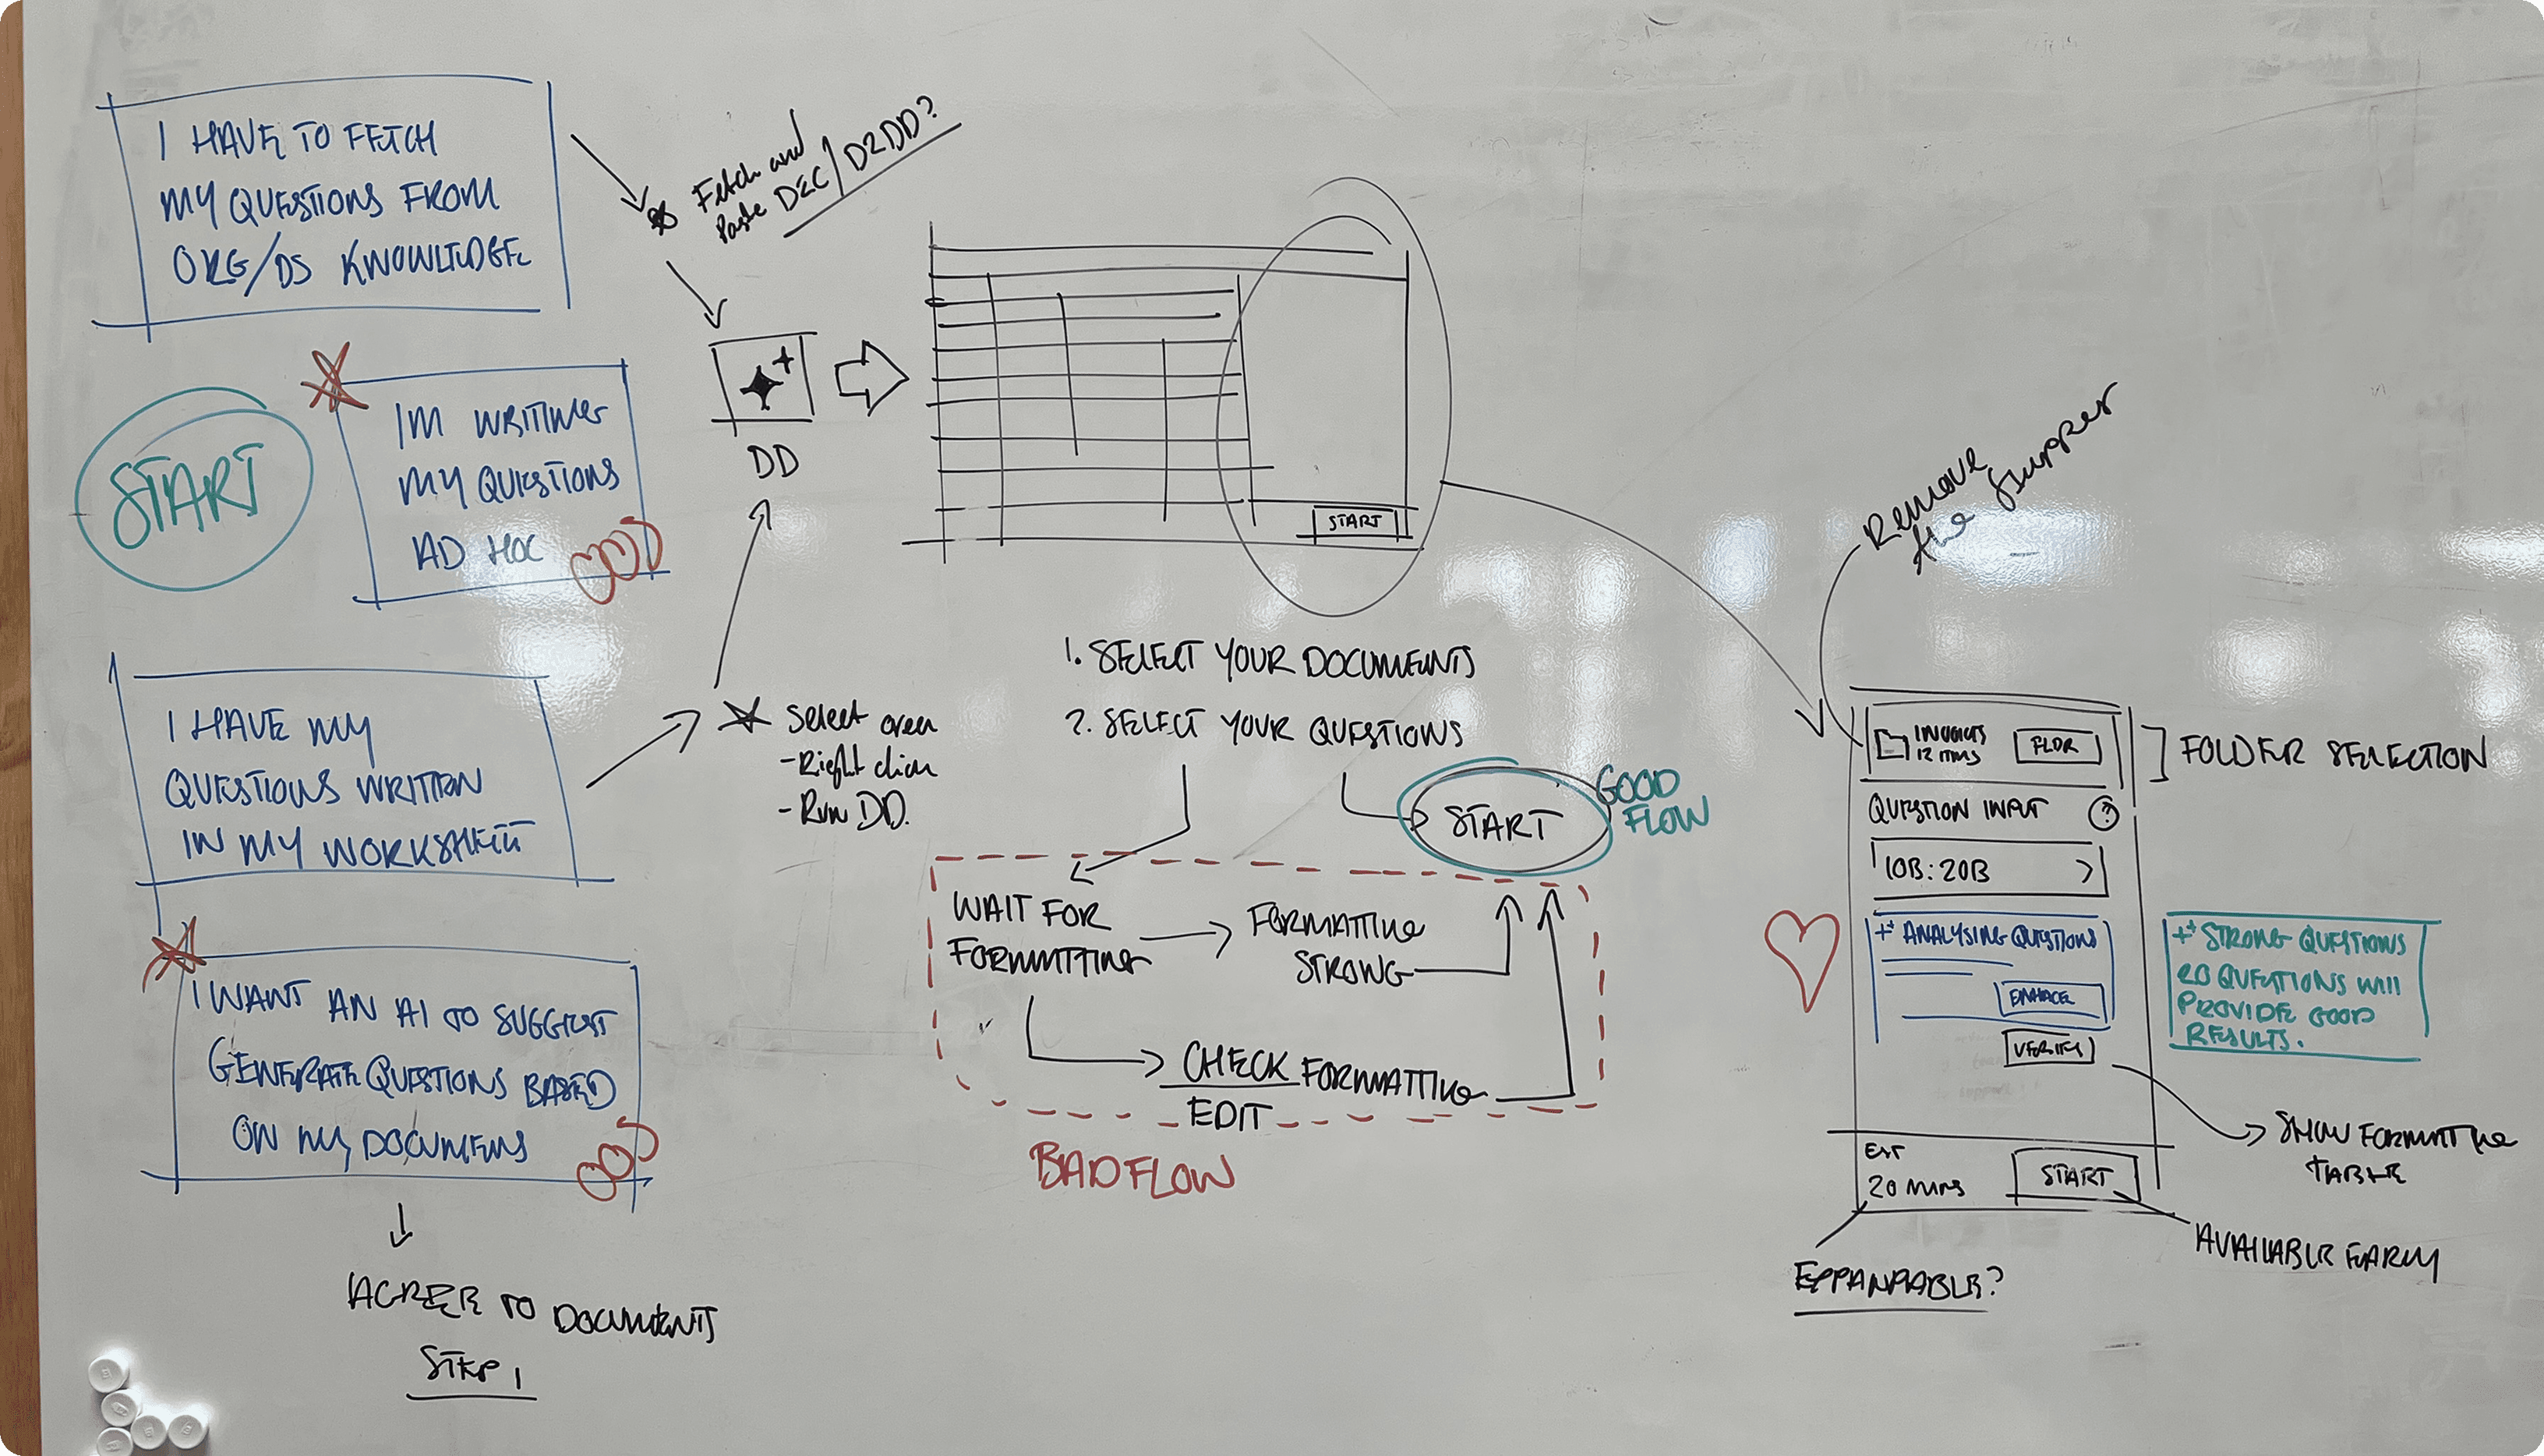 I HAVE TO FETCH
MY QUESTIONS FROM
ORG/DS KNOWLEDGE
START
IM WRITING
MY QUESTIONS
AD HOC
I HAVE MY
QUESTIONS WRITTEN
IN MY WORKSHEET
I WANT AN AI TO SUGGEST
GENERATE QUESTIONS BASED
ON MY DOCUMENTS
AGREE TO DOCUMENTS
STEP 1
Fetch and
Paste DEC/D2DD?
DD
Select area
-Right click
-Run DD.
START
1. SELECT YOUR DOCUMENTS
2. SELECT YOUR QUESTIONS
START
GOOD
FLOW
WAIT FOR
FORMATTING
FORMATTING
STRONG
CHECK FORMATTING
EDIT
BAD FLOW
Remove
the
INVOICES
12 ITEMS
FLDR
FOLDER SELECTION
QUESTION INPUT ?
10B:20B >
ANALYSING QUESTIONS
ENHANCE
VERIFY
STRONG QUESTIONS
20 QUESTIONS WILL
PROVIDE GOOD
RESULTS.
SHOW FORMATTING
TABLE
EST
20 MINS
START
AVAILABLE EARLY
EXPANDABLE?